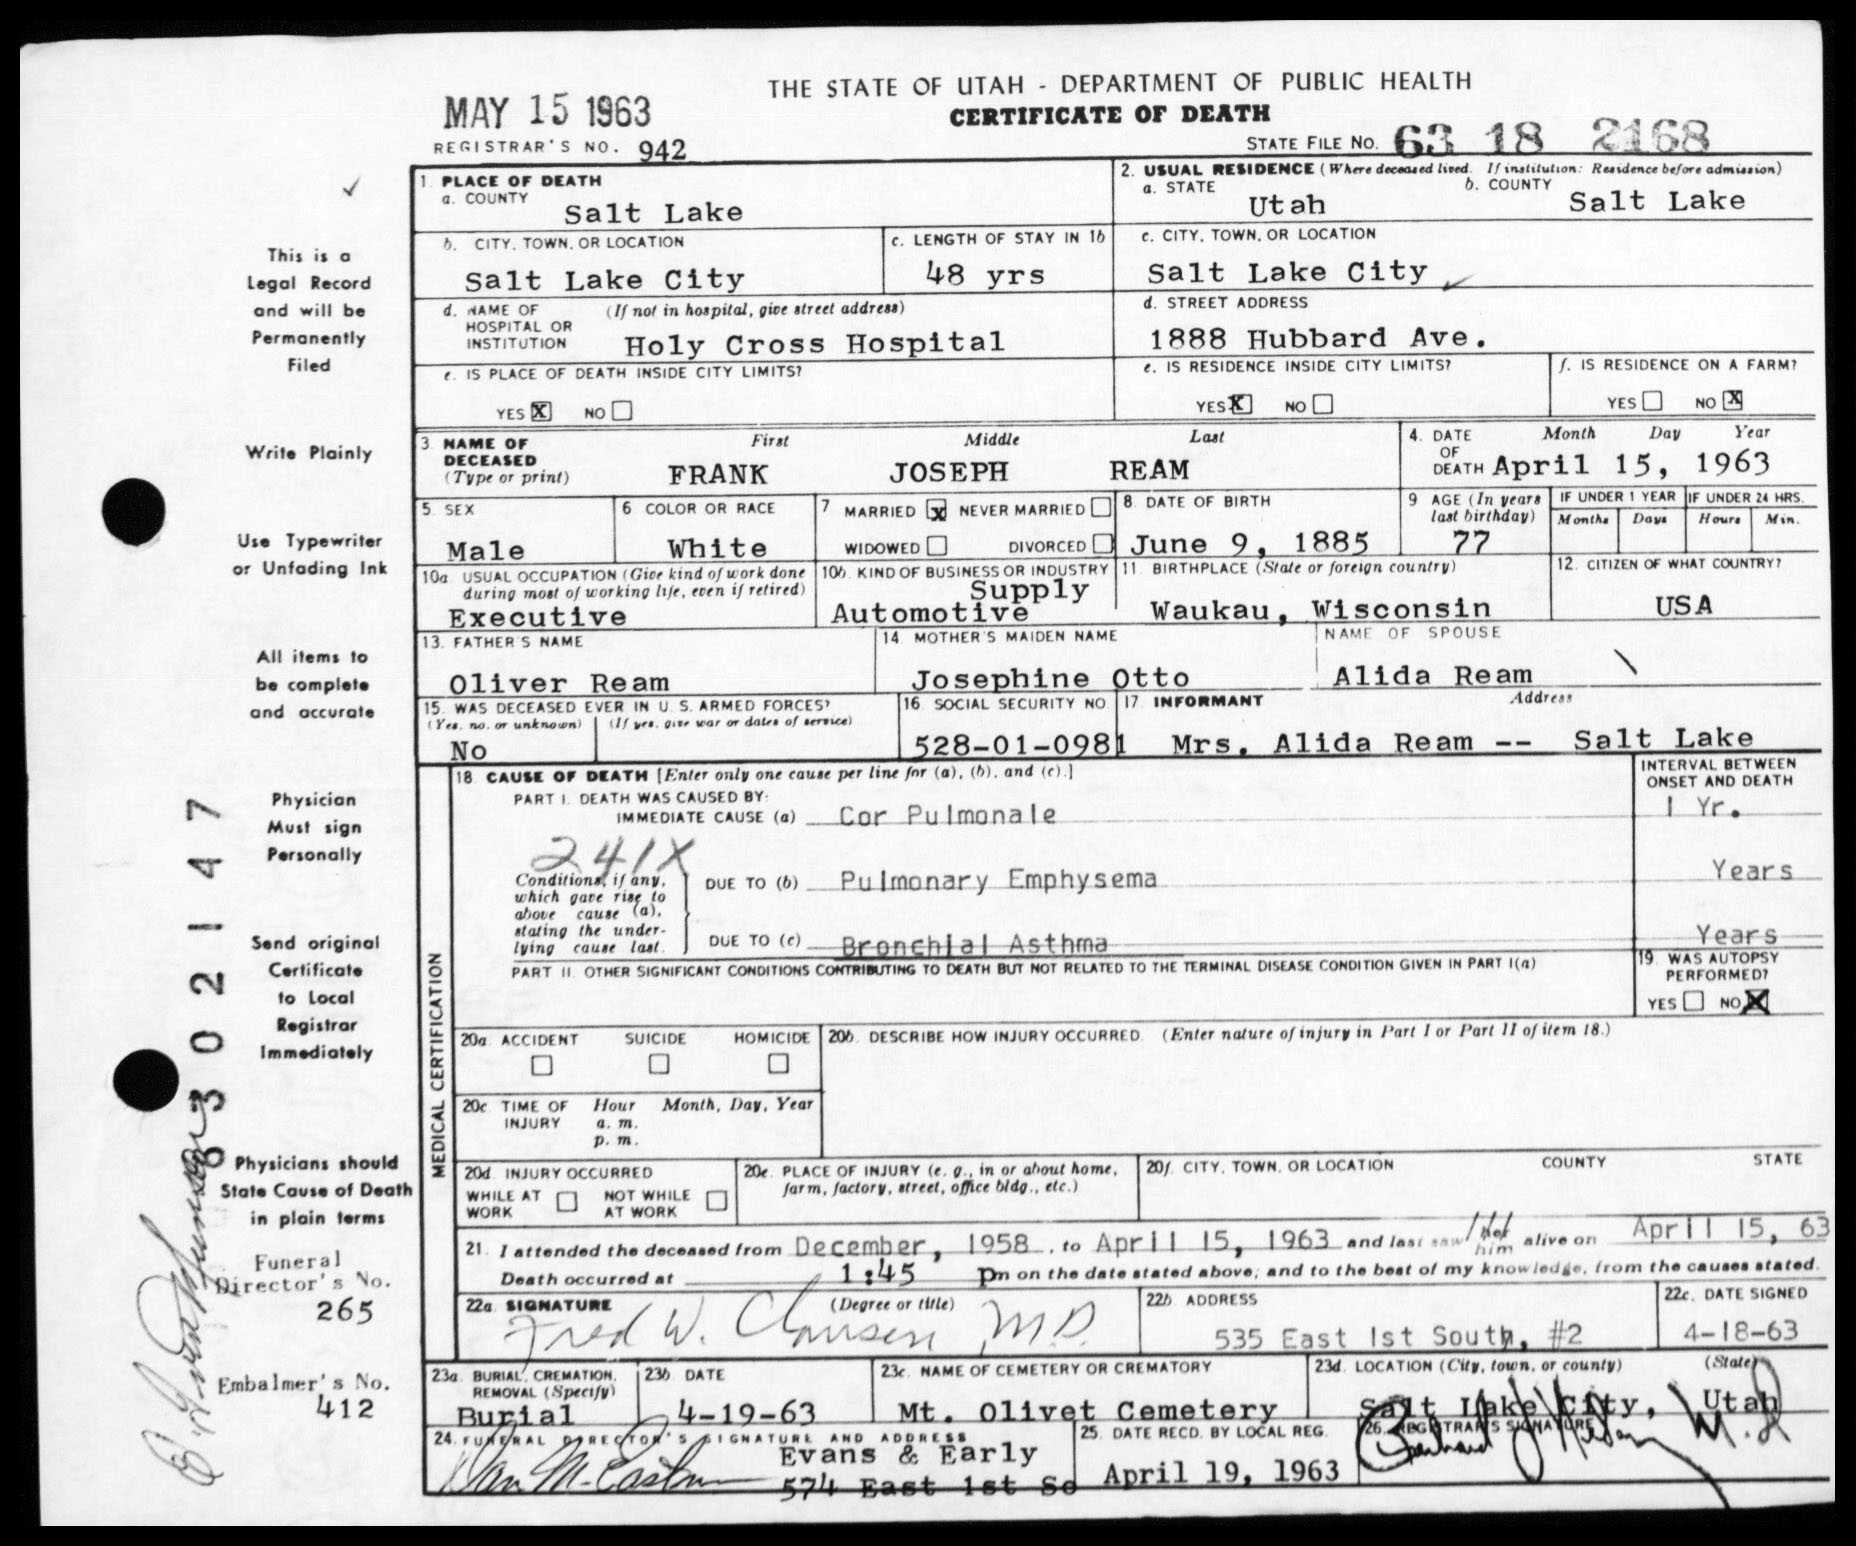 THE STATE OF UTAH - DEPARTMENT OF PUBLIC HEALTH
MAY 15 1963
CERTIFICATE OF DEATH
REGISTRAR'S NO. 942
STATE FILE NO. 63 18 2168
This is a
Legal Record
and will be
Permanently
Filed
Write Plainly
Use Typewriter
or Unfading Ink
All items to
be complete
and accurate
Physician
Must sign
Personally
Send original
Certificate
to Local
Registrar
Immediately
Physicians should
State Cause of Death
in plain terms
Funeral
Director's No.
265
Embalmer's No.
412
6302147
1. PLACE OF DEATH
a. COUNTY
Salt Lake
2. USUAL RESIDENCE (Where deceased lived. If institution: Residence before admission)
a. STATE
Utah
b. COUNTY
Salt Lake
b. CITY, TOWN, OR LOCATION
Salt Lake City
c. LENGTH OF STAY IN 1b
48 yrs
c. CITY, TOWN, OR LOCATION
Salt Lake City
d. NAME OF HOSPITAL OR INSTITUTION (If not in hospital, give street address)
Holy Cross Hospital
d. STREET ADDRESS
1888 Hubbard Ave.
e. IS PLACE OF DEATH INSIDE CITY LIMITS?
YES X NO
e. IS RESIDENCE INSIDE CITY LIMITS?
YES X NO
f. IS RESIDENCE ON A FARM?
YES NO X
3. NAME OF DECEASED (Type or print)
First Middle Last
FRANK JOSEPH REAM
4. DATE OF DEATH Month Day Year
April 15, 1963
5. SEX
Male
6 COLOR OR RACE
White
7 MARRIED X NEVER MARRIED
WIDOWED DIVORCED
8. DATE OF BIRTH
June 9, 1885
9 AGE (In years last birthday)
77
IF UNDER 1 YEAR
Months Days
IF UNDER 24 HRS.
Hours Min.
10a. USUAL OCCUPATION (Give kind of work done during most of working life, even if retired)
Executive
10b. KIND OF BUSINESS OR INDUSTRY
Supply
Automotive
11. BIRTHPLACE (State or foreign country)
Waukau, Wisconsin
12. CITIZEN OF WHAT COUNTRY?
USA
13. FATHER'S NAME
Oliver Ream
14 MOTHER'S MAIDEN NAME
Josephine Otto
NAME OF SPOUSE
Alida Ream
15. WAS DECEASED EVER IN U. S. ARMED FORCES?
(Yes, no, or unknown) (If yes, give war or dates of service)
No
16. SOCIAL SECURITY NO.
528-01-0981
17. INFORMANT Address
Mrs. Alida Ream -- Salt Lake
MEDICAL CERTIFICATION
18 CAUSE OF DEATH [Enter only one cause per line for (a), (b), and (c).]
INTERVAL BETWEEN ONSET AND DEATH
PART I. DEATH WAS CAUSED BY:
IMMEDIATE CAUSE (a) Cor Pulmonale
1 Yr.
241X
Conditions, if any, which gave rise to above cause (a), stating the underlying cause last.
DUE TO (b) Pulmonary Emphysema
Years
DUE TO (c) Bronchial Asthma
Years
PART II. OTHER SIGNIFICANT CONDITIONS CONTRIBUTING TO DEATH BUT NOT RELATED TO THE TERMINAL DISEASE CONDITION GIVEN IN PART I(a)
19. WAS AUTOPSY PERFORMED?
YES NO X
20a. ACCIDENT SUICIDE HOMICIDE
20b. DESCRIBE HOW INJURY OCCURRED. (Enter nature of injury in Part I or Part II of item 18.)
20c. TIME OF INJURY Hour Month, Day, Year
a. m.
p. m.
20d. INJURY OCCURRED
WHILE AT WORK NOT WHILE AT WORK
20e. PLACE OF INJURY (e. g., in or about home, farm, factory, street, office bldg., etc.)
20f. CITY, TOWN, OR LOCATION COUNTY STATE
21. I attended the deceased from December, 1958, to April 15, 1963 and last saw her him alive on April 15, 63
Death occurred at 1:45 pm on the date stated above; and to the best of my knowledge, from the causes stated.
22a. SIGNATURE (Degree or title)
Fred W. Clausen M.D.
22b. ADDRESS
535 East 1st South, #2
22c. DATE SIGNED
4-18-63
23a. BURIAL, CREMATION, REMOVAL (Specify)
Burial
23b. DATE
4-19-63
23c. NAME OF CEMETERY OR CREMATORY
Mt. Olivet Cemetery
23d. LOCATION (City, town, or county) (State)
Salt Lake City, Utah
24. FUNERAL DIRECTOR'S SIGNATURE AND ADDRESS
Evans & Early
574 East 1st So
25. DATE RECD. BY LOCAL REG.
April 19, 1963
26. REGISTRAR'S SIGNATURE